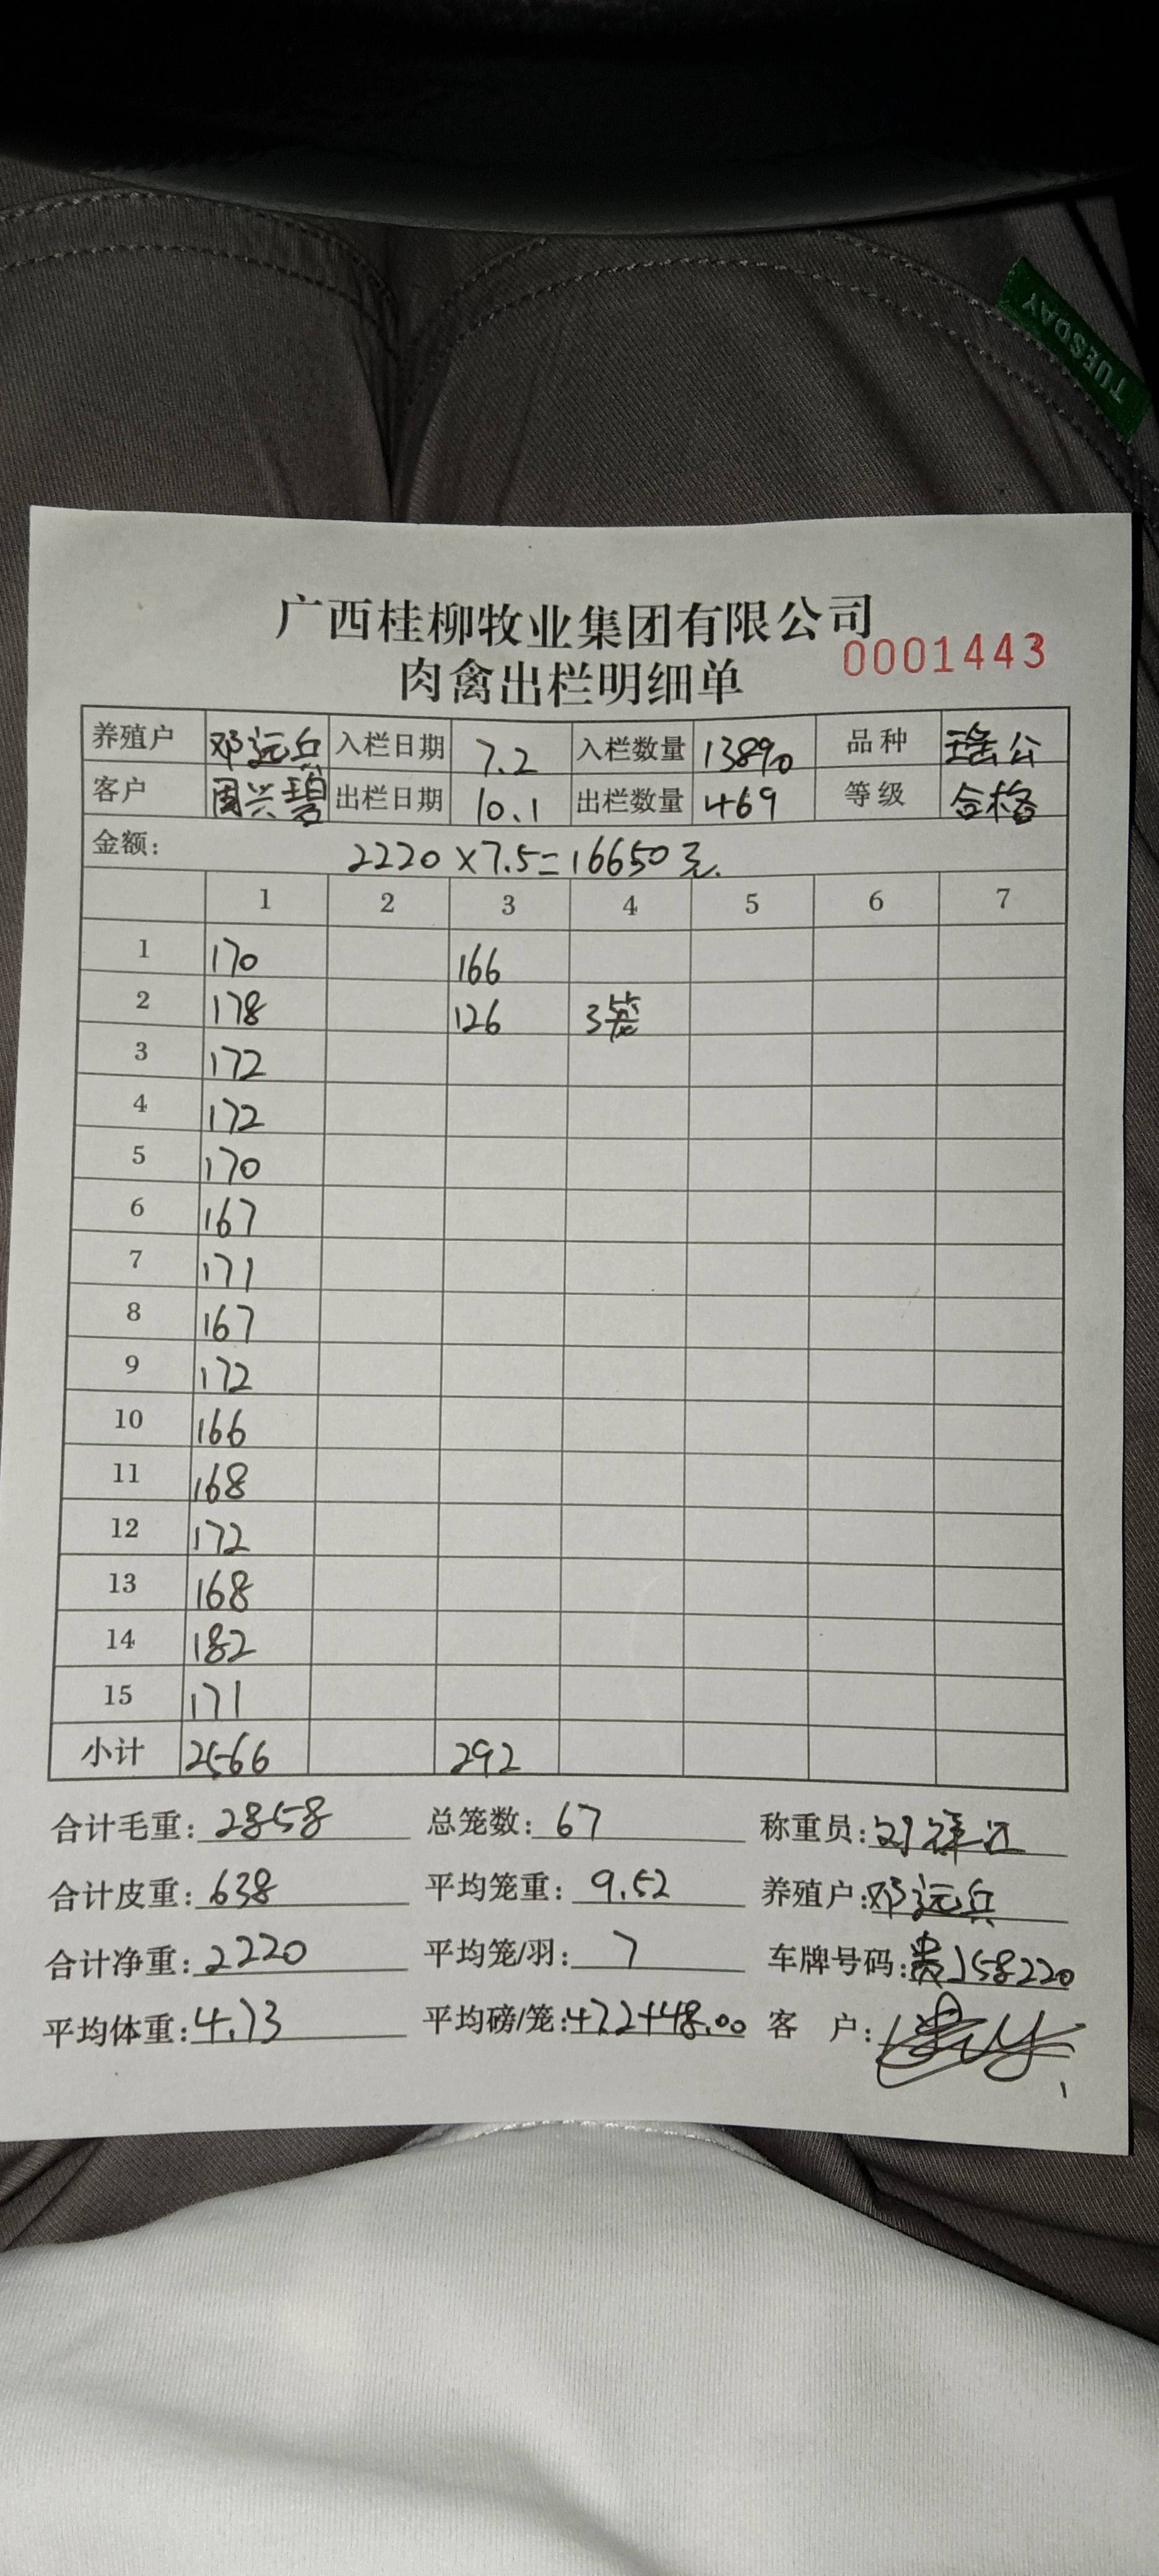 TUESDAY
广西桂柳牧业集团有限公司
肉禽出栏明细单 0001443
养殖户 邓远兵 入栏日期 7.2 入栏数量 13890 品种 瑶公
客户 周兴碧 出栏日期 10.1 出栏数量 469 等级 合格
金额: 2220×7.5=16650元.
1 2 3 4 5 6 7
1 170 166
2 178 126 3笼
3 172
4 172
5 170
6 167
7 171
8 167
9 172
10 166
11 168
12 172
13 168
14 182
15 171
小计 2566 292
合计毛重: 2858 总笼数: 67 称重员:
合计皮重: 638 平均笼重: 9.52 养殖户: 邓远兵
合计净重: 2220 平均笼/羽: 7 车牌号码: 贵J58220
平均体重: 4.73 平均磅/笼: 472+48.00 客户: